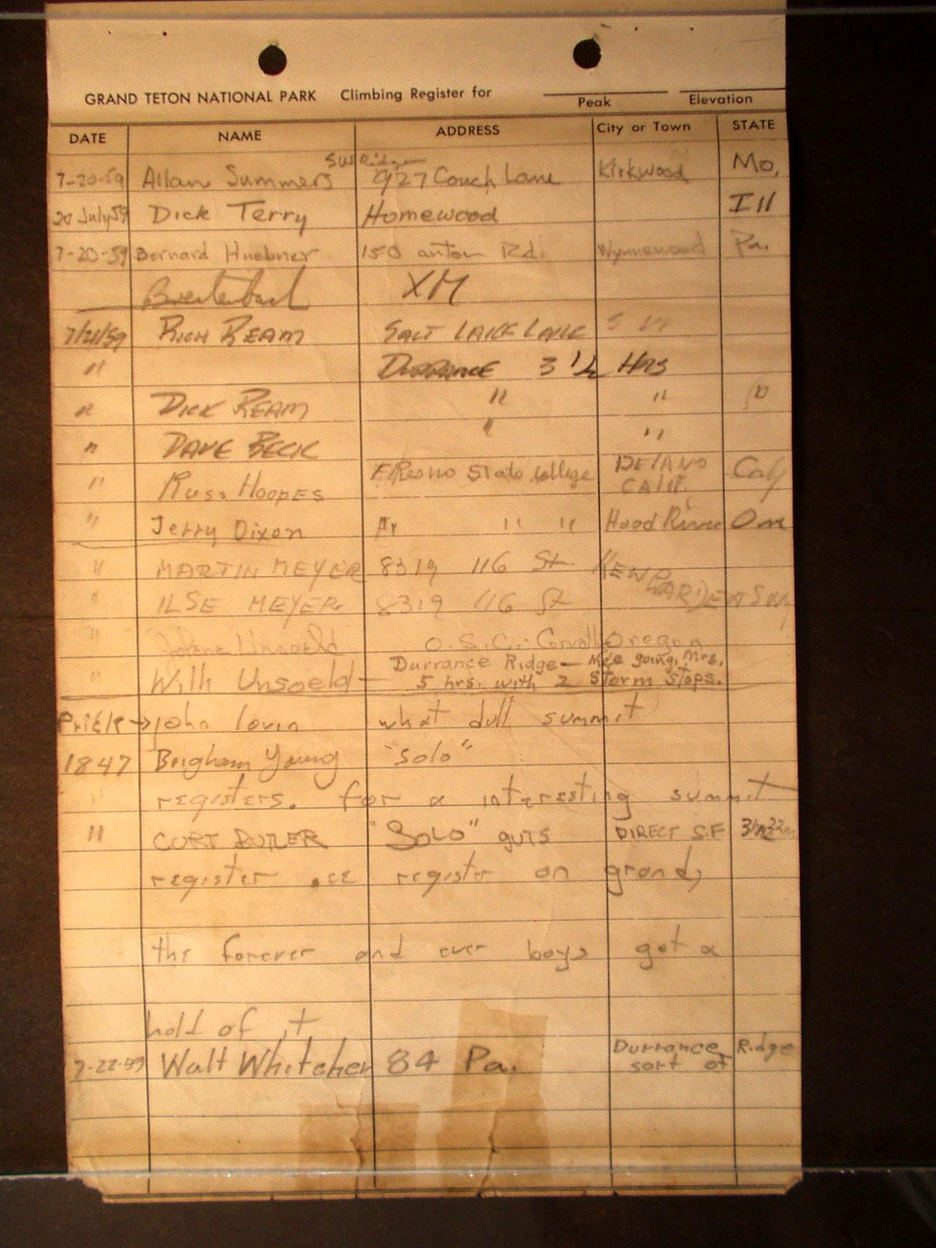 GRAND TETON NATIONAL PARK Climbing Register for
Peak Elevation
DATE NAME ADDRESS City or Town STATE
SW Ridge
7-20-59 Allan Summers 927 Couch Lane Kirkwood Mo,
20 July 59 Dick Terry Homewood Ill
7-20-59 Bernard Huebner 150 anton Rd. Wynnewood Pa.
Breitenbach XM
7/21/59 RICH REAM SALT LAKE LAKE
" DURRANCE 3 1/2 HRS
" DICK REAM " "
" DAVE BECK " "
" Russ Hoopes Fresno State College DELANO CALIF. Calif
" Jerry Dixon " " Hood River Ore
" MARTIN MEYER 8319 116 St. KEW GARDENS NY
" ILSE MEYER 8319 116 St
" Jolene Unsoeld O.S.C. Corvallis Oregon
Durrance Ridge — Nice going, Mrs.
" Willi Unsoeld — 5 hrs. with 2 Storm Stops.
Prick → john lovin what dull summit
1847 Brigham Young "Solo"
registers. for a interesting summit
" CURT BUTLER "SOLO" GUTS DIRECT S.F.
register see register on grand,
the forever and ever boys got a
hold of it
7-22-59 Walt Whitcher 84 Pa. Durrance Ridge
sort of